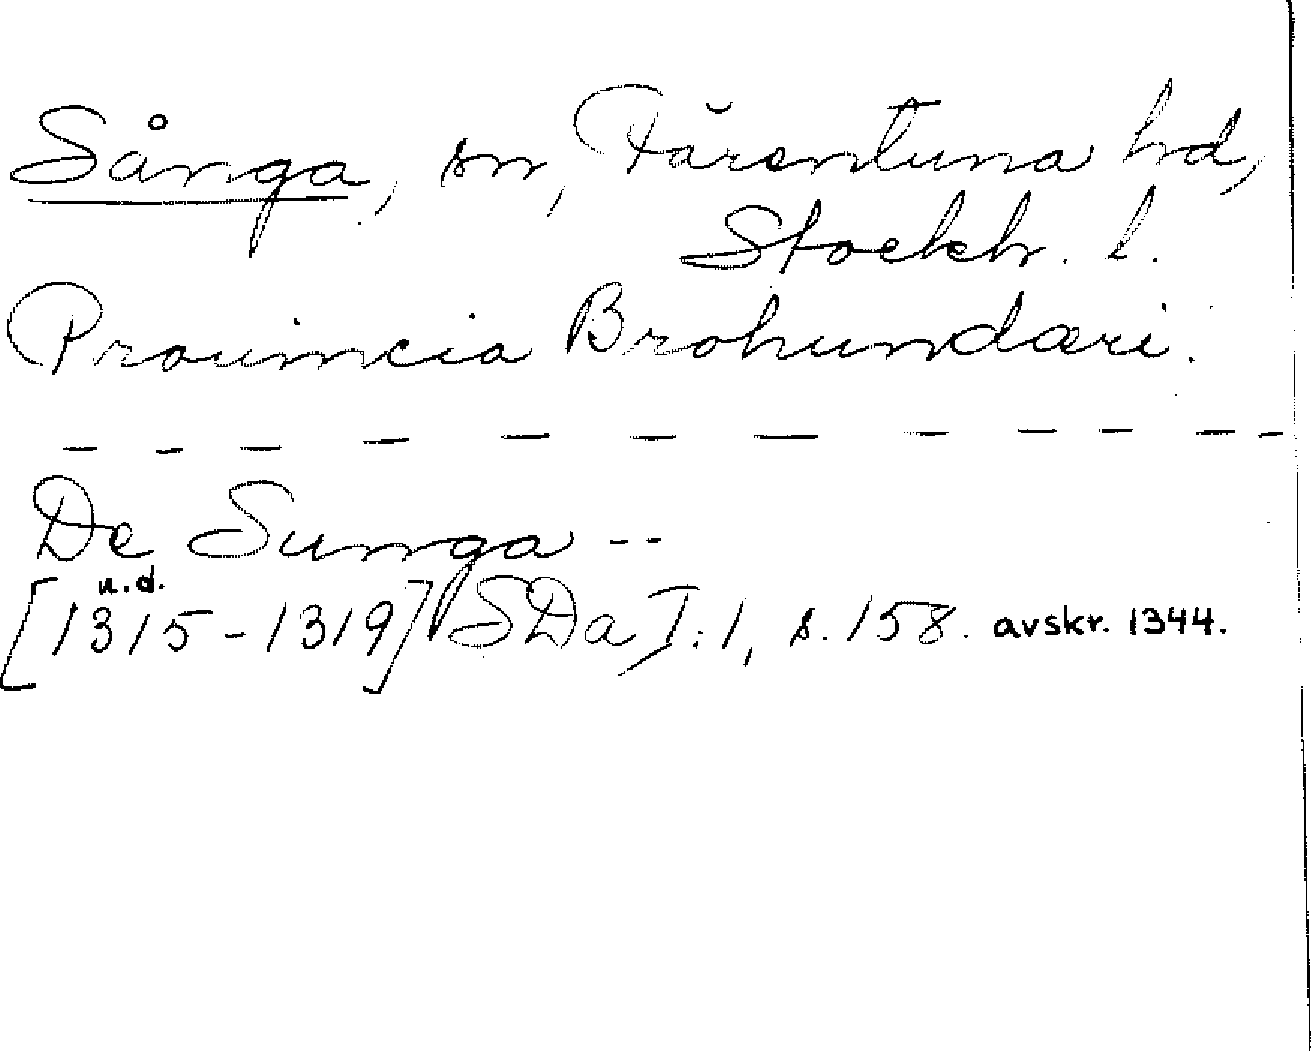 Sånga, sn, Färentuna hd,
Stockh. l.
Prouincia Brohundæri.
— — — — — — — — — — —
De Sunga --
u.d.
[1315-1319] SDa I:1, s. 158. avskr. 1344.